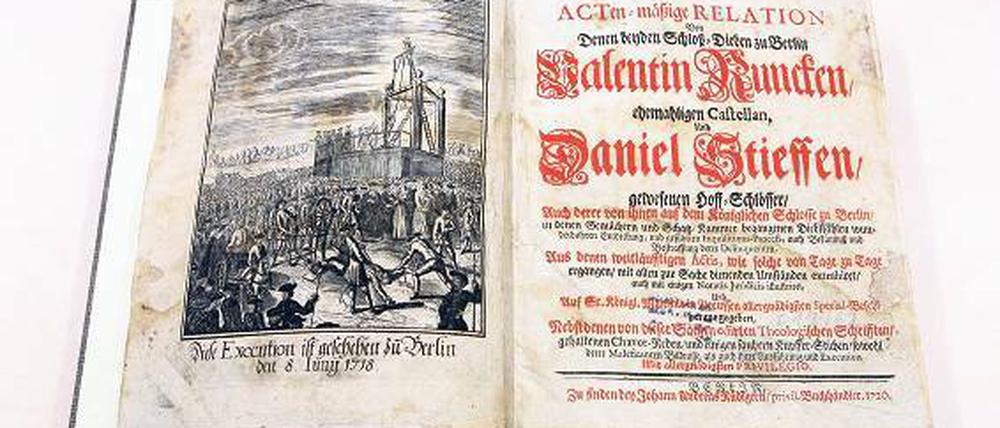 Diese Execution ist geschehen zu Berlin
den 8. Juny 1718
ACTen-mäßige RELATION
Von
Denen beyden Schloß-Dieben zu Berlin
Valentin Runcken/
ehemahligen Castellan,
Und
Daniel Stieffen/
gewesenen Hoff-Schlösser/
Auch derer von ihnen aus dem Königlichen Schlosse zu Berlin/
in denen Gemächern und Schatz-Kammer begangenen Diebstählen
Bestraffung
Aus denen weitläufftigen Actis, wie solche von Tage zu Tage
ergangen/ mit allen zur Sache dienenden Umständen
auch mit einigen Notatis
Und
Auf Sr. Königl. Preussen allergnädigsten Special-Befehl
herausgegeben,
Nebst denen von dieser Sachen Theologischen Schrifften,
gehaltenen Reden, und einigen saubern Kupffer-Stichen sowohl
dem als auch Execution
Mit allergnädigsten PRIVILEGIO.
BERLIN,
Zu finden bey Johann Rüdigern/ privil. Buchhändler. 1720.